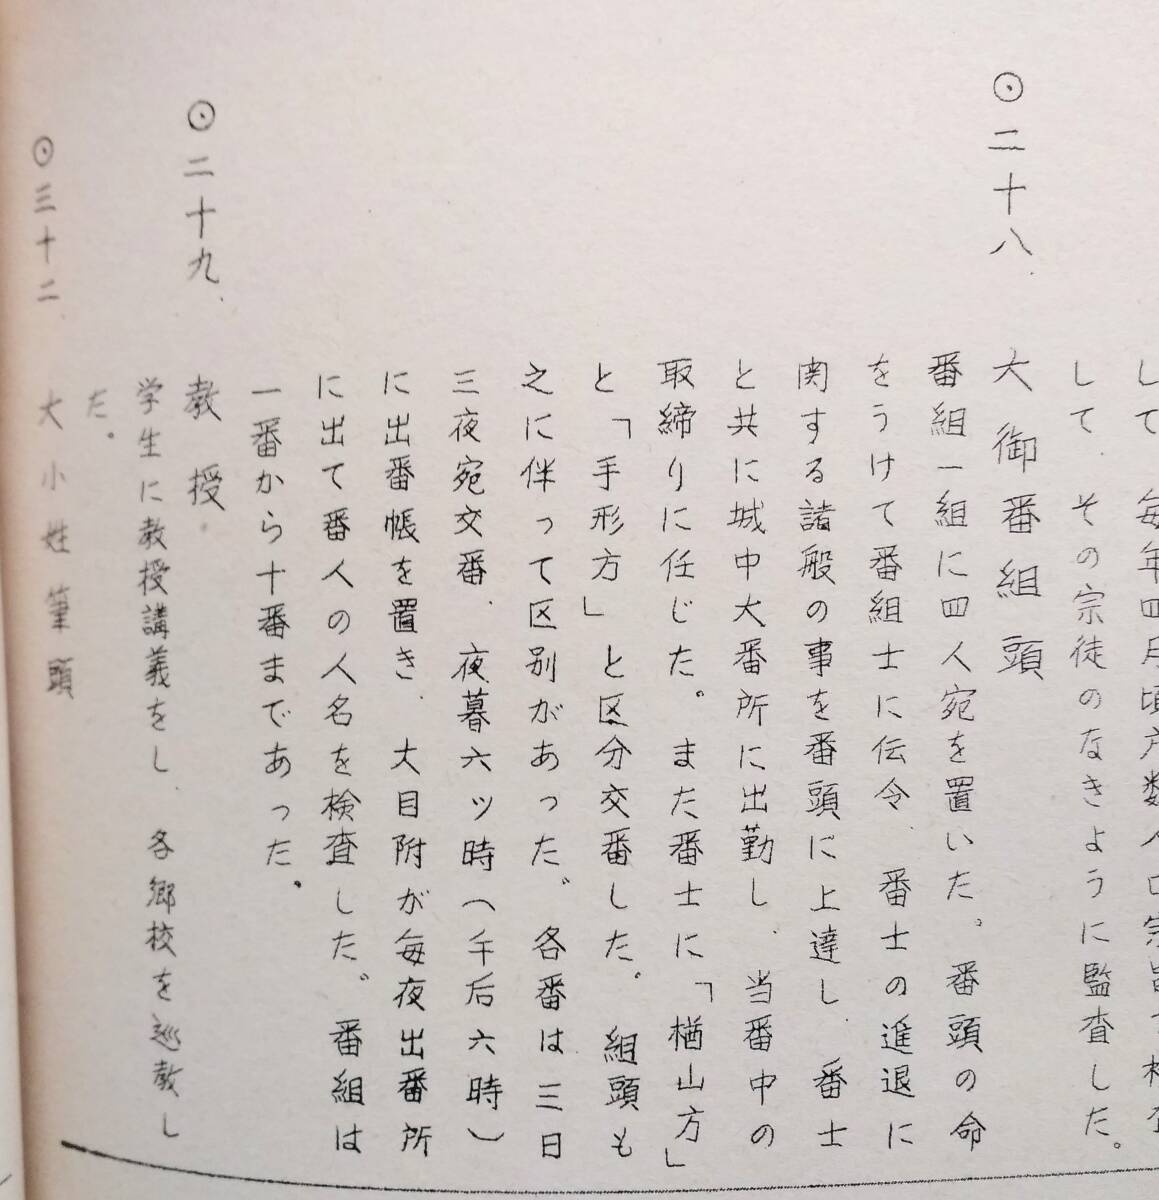 して、毎年四月頃戸数人口宗旨を検査
して、その宗徒のなきように監査した。
⊙二十八、大御番組頭
番組一組に四人宛を置いた。番頭の命
をうけて番組士に伝令、番士の進退に
関する諸般の事を番頭に上達し、番士
と共に城中大番所に出勤し、当番中の
取締りに任じた。また番士に「楢山方」
と「手形方」と区分交番した。組頭も
之に伴って区別があった。各番は三日
三夜宛交番、夜暮六ツ時(午后六時)
に出番帳を置き、大目附が毎夜出番所
に出て番人の人名を検査した。番組は
一番から十番まであった。
⊙二十九、教授。
学生に教授講義をし、各郷校を巡教し
た。
⊙三十二、大小姓筆頭